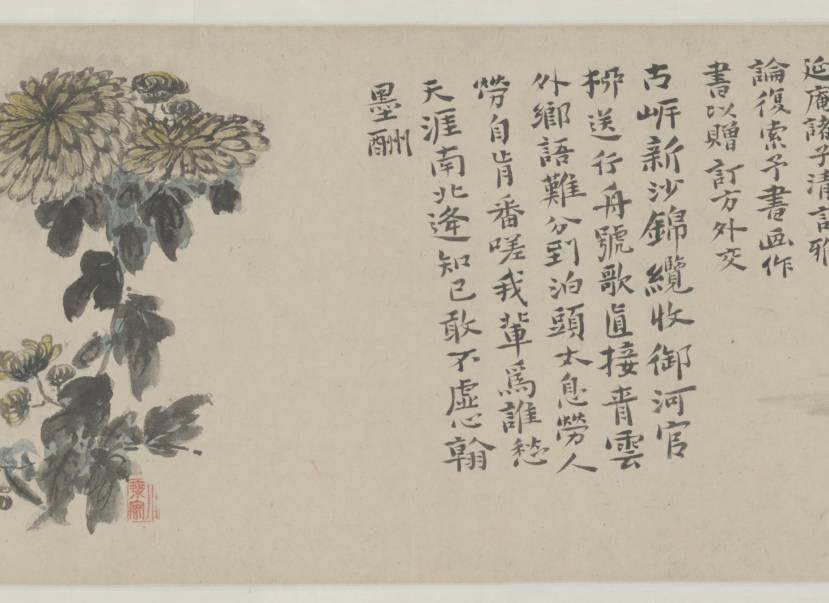 延庵諸子清訂雅
論復索予書画作
書以贈訂方外交
古岸新沙錦纜收御河官
柳送行舟號歌直接青雲
外鄉語難分到泊頭太息勞人
勞自肯番嗟我輩為誰愁
天涯南北逢知己敢不虛心翰
墨酬